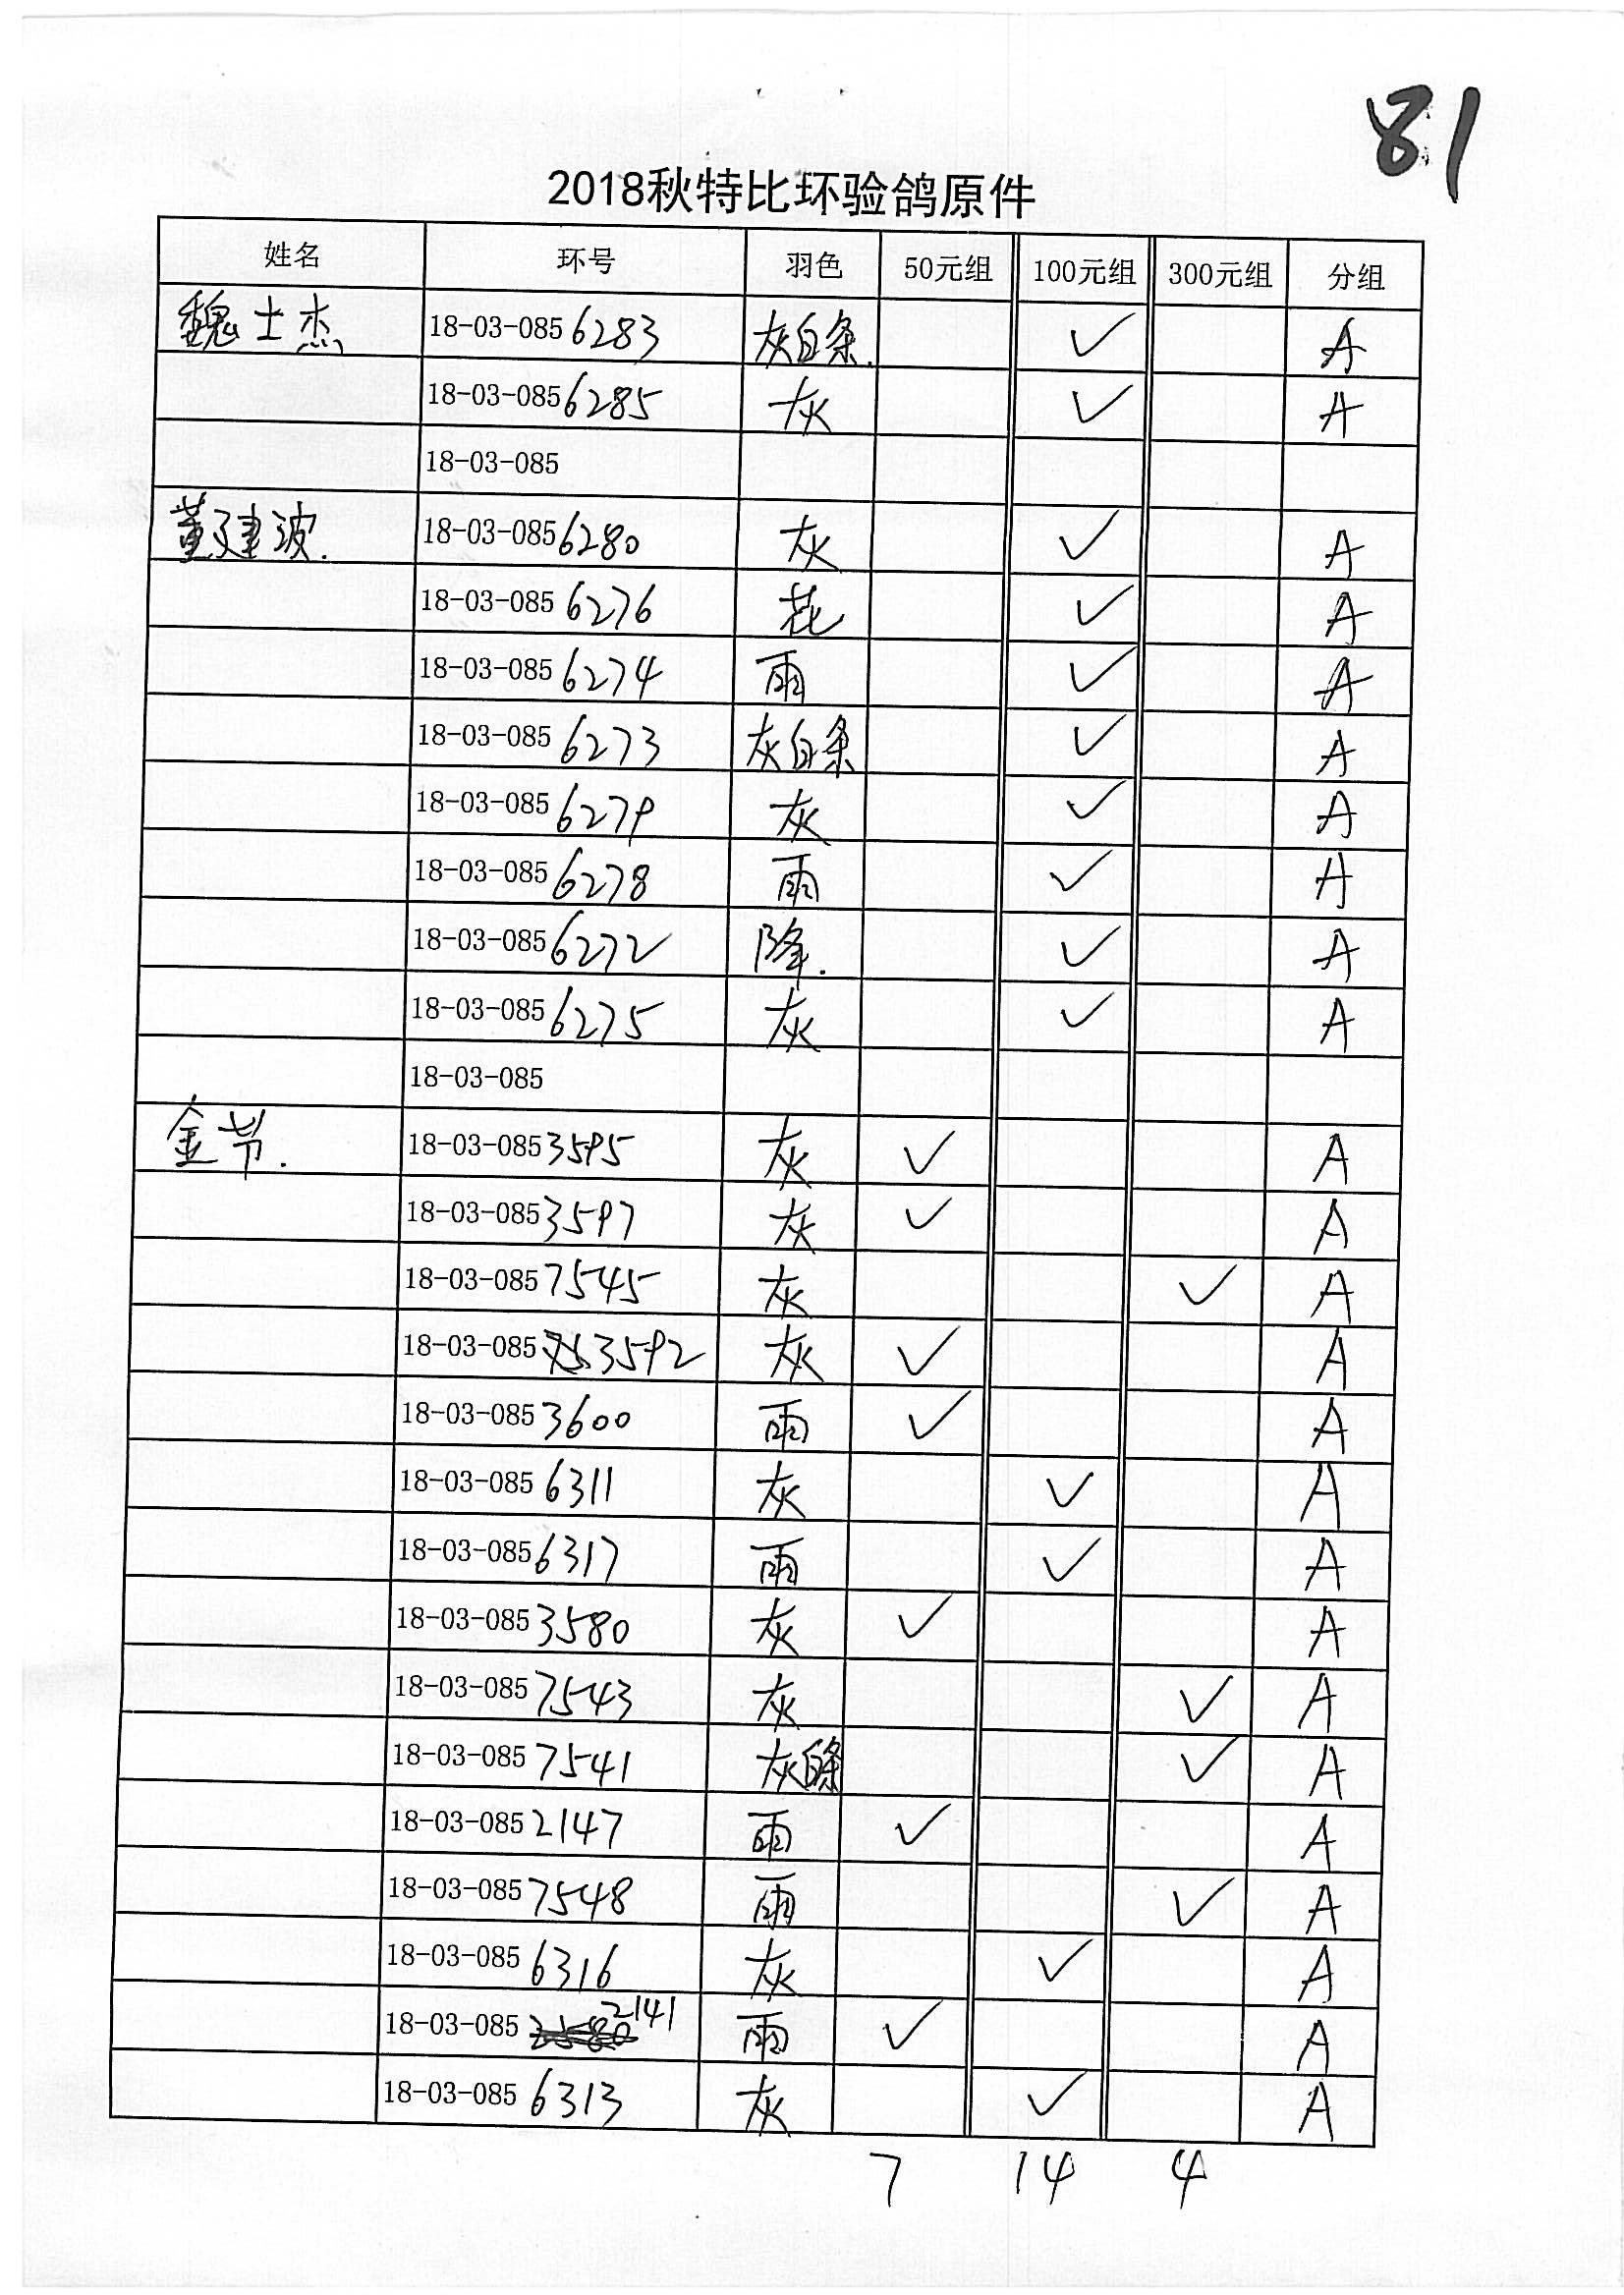 81
2018秋特比环验鸽原件
姓名 环号 羽色 50元组 100元组 300元组 分组
魏士杰 18-03-085 6283 灰白条. ✓ A
18-03-085 6285 灰 ✓ A
18-03-085
董建波. 18-03-085 6280 灰 ✓ A
18-03-085 6276 花 ✓ A
18-03-085 6274 雨 ✓ A
18-03-085 6273 灰白条 ✓ A
18-03-085 6279 灰 ✓ A
18-03-085 6278 雨 ✓ A
18-03-085 6272 降. ✓ A
18-03-085 6275 灰 ✓ A
18-03-085
金节. 18-03-085 3595 灰 ✓ A
18-03-085 3597 灰 ✓ A
18-03-085 7545 灰 ✓ A
18-03-085 3592 灰 ✓ A
18-03-085 3600 雨 ✓ A
18-03-085 6311 灰 ✓ A
18-03-085 6317 雨 ✓ A
18-03-085 3580 灰 ✓ A
18-03-085 7543 灰 ✓ A
18-03-085 7541 灰白條 ✓ A
18-03-085 2147 雨 ✓ A
18-03-085 7548 雨 ✓ A
18-03-085 6316 灰 ✓ A
18-03-085 2141 雨 ✓ A
18-03-085 6313 灰 ✓ A
7 14 4